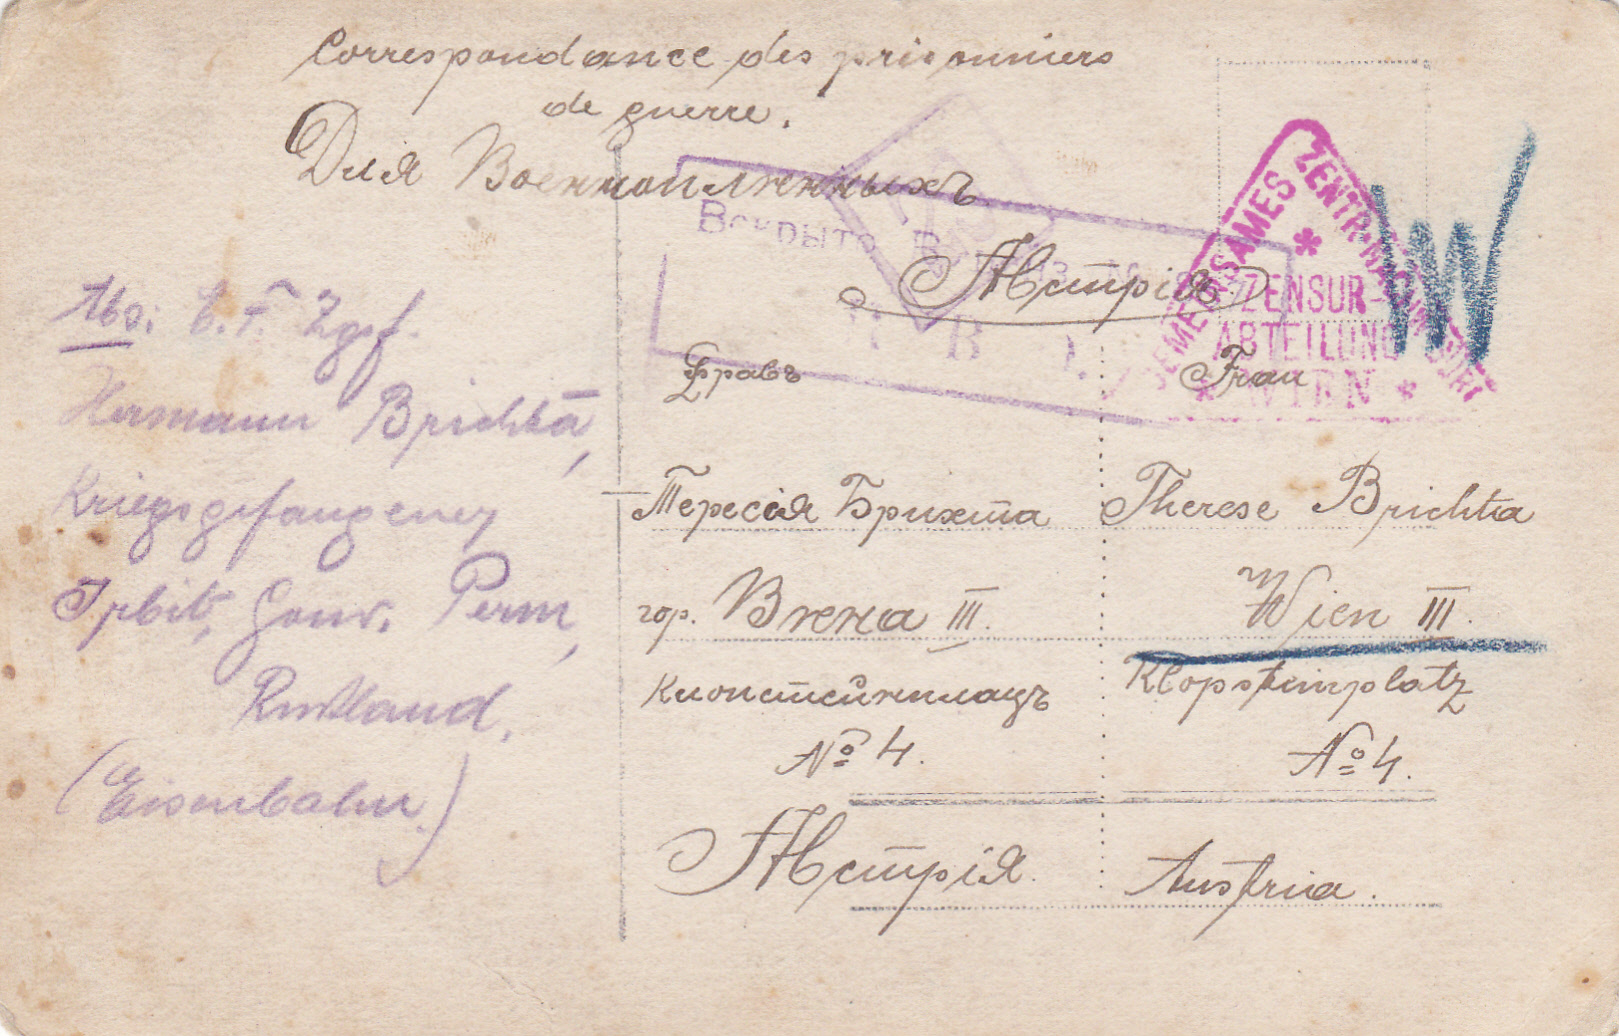 Correspondance des prisonniers
de guerre.
Для Военноплѣнныхъ
Вскрыто
Австрія
GEMEINSAMES ZENTR.
ZENSUR-
ABTEILUNG
WIEN
W
Abs: E. F. Zgsf.
Hermann Brichta,
Kriegsgefangener
Irbit, Gouv. Perm,
Rußland.
(Eisenbahn.)
Фравъ
Frau
Тересія Брихта
Therese Brichta
гор. Вѣна III.
Wien III.
Клопстейнплацъ
Klopsteinplatz
№ 4.
№ 4.
Австрія.
Austria.